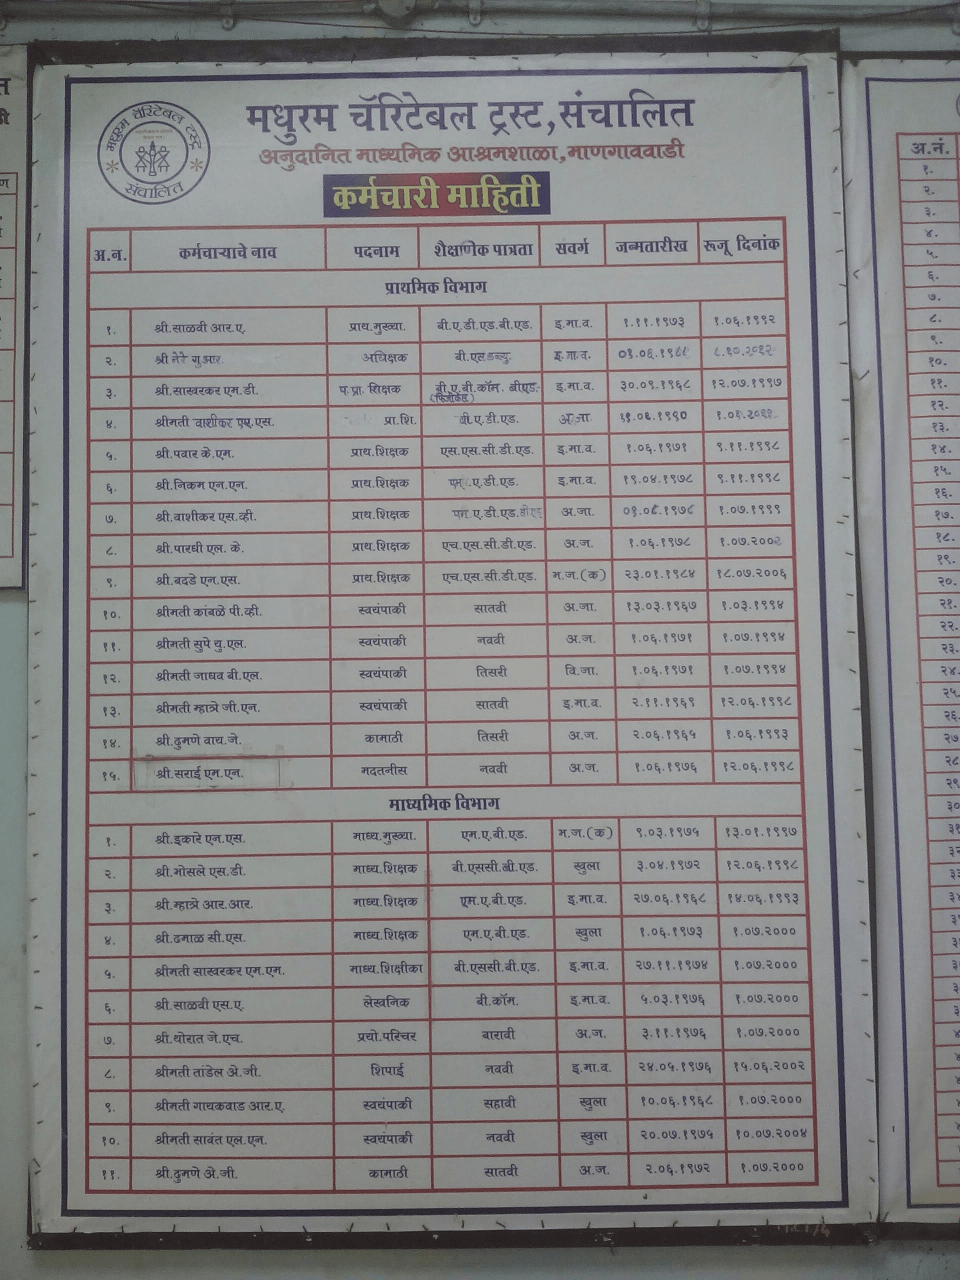 मधुरम चॅरिटेबल ट्रस्ट
संचालित
मधुरम चॅरिटेबल ट्रस्ट, संचालित
अनुदानित माध्यमिक आश्रमशाळा, माणगाववाडी
कर्मचारी माहिती
अ.न. कर्मचाऱ्याचे नाव पदनाम शैक्षणिक पात्रता संवर्ग जन्मतारीख रूजू दिनांक
प्राथमिक विभाग
१. श्री.साळवी आर.ए. प्राथ.मुख्या. बी.ए.डी.एड.बी.एड. इ.मा.व. १.११.१९७३ १.०६.१९९२
२. श्री नेरे गु आर. अधिक्षक इ.मा.व.
३. श्री.साखरकर एम.डी. प.प्रा. शिक्षक बी.ए.बी.कॉम. बीएड. इ.मा.व. ३०.०९.१९६८ १२.०७.१९९७
४. श्रीमती वाशीकर एस.एस. प्रा.शि. बी.ए.डी.एड. अ.जा.
५. श्री.पवार के.एम. प्राथ.शिक्षक एस.एस.सी.डी.एड. इ.मा.व. १.०६.१९७१ ९.११.१९९८
६. श्री.निकम एन.एन. प्राथ.शिक्षक एम.ए.डी.एड. इ.मा.व. १९.०४.१९७८ ९.११.१९९८
७. श्री.वाशीकर एस.व्ही. प्राथ.शिक्षक एम ए.डी.एड. बीएड अ.जा. १.०७.१९९९
८. श्री.पारधी एल. के. प्राथ.शिक्षक एच.एस.सी.डी.एड. अ.ज. १.०६.१९७८ १.०७.२००२
९. श्री.बदडे एन.एस. प्राथ.शिक्षक एच.एस.सी.डी.एड. भ.ज.(क) २३.०१.१९८४ १८.०७.२००६
१०. श्रीमती कांबळे पी.व्ही. स्वयंपाकी सातवी अ.जा. १३.०३.१९६७ १.०३.१९९४
११. श्रीमती सुपे यु.एल. स्वयंपाकी नववी अ.ज. १.०६.१९७१ १.०७.१९९४
१२. श्रीमती जाधव बी.एल. स्वयंपाकी तिसरी वि.जा. १.०६.१९७१ १.०७.१९९४
१३. श्रीमती म्हात्रे जी.एन. स्वयंपाकी सातवी इ.मा.व. २.११.१९६९ १२.०६.१९९८
१४. श्री.दुमणे वाय.जे. कामाठी तिसरी अ.ज. २.०६.१९६५ १.०६.१९९३
१५. श्री.सराई एम.एन. मदतनीस नववी अ.ज. १.०६.१९७६ १२.०६.१९९८
माध्यमिक विभाग
१. श्री.इकारे एन.एस. माध्य.मुख्या. एम.ए.बी.एड. भ.ज.(क) ९.०३.१९७५ १३.०१.१९९७
२. श्री.भोसले एस.डी. माध्य.शिक्षक बी.एससी.बी.एड. खुला ३.०४.१९७२ १२.०६.१९९८
३. श्री.म्हात्रे आर.आर. माध्य.शिक्षक एम.ए.बी.एड. इ.मा.व. २७.०६.१९६८ १४.०६.१९९३
४. श्री.ढमाळ सी.एस. माध्य.शिक्षक एम.ए.बी.एड. खुला १.०६.१९७३ १.०७.२०००
५. श्रीमती साखरकर एम.एम. माध्य.शिक्षीका बी.एससी.बी.एड. इ.मा.व. २७.११.१९७४ १.०७.२०००
६. श्री.साळवी एस.ए. लेखनिक बी.कॉम. इ.मा.व. ५.०३.१९७६ १.०७.२०००
७. श्री.थोरात जे.एच. प्रयो.परिचर बारावी अ.ज. ३.११.१९७६ १.०७.२०००
८. श्रीमती तांडेल अे.जी. शिपाई नववी इ.मा.व. २४.०५.१९७६ १५.०६.२००२
९. श्रीमती गायकवाड आर.ए. स्वयंपाकी सहावी खुला १०.०६.१९६८ १.०७.२०००
१०. श्रीमती सावंत एल.एन. स्वयंपाकी नववी खुला २०.०७.१९७५ १०.०७.२००४
११. श्री.दुमणे अे.जी. कामाठी सातवी अ.ज. २.०६.१९७२ १.०७.२०००
अ.नं.
१.
२.
३.
४.
५.
६.
७.
८.
९.
१०.
११.
१२.
१३.
१४.
१५.
१६.
१७.
१८.
१९.
२०.
२१.
२२.
२३.
२४.